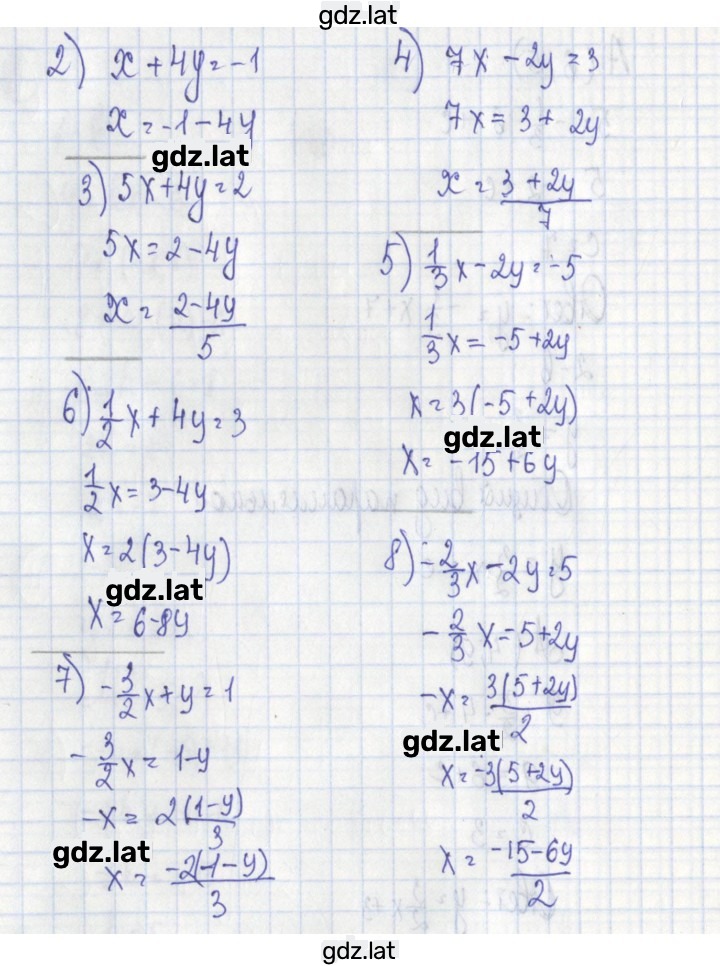 gdz.lat
2) x + 4y = -1
x = -1 - 4y
gdz.lat
3) 5x + 4y = 2
5x = 2 - 4y
x = (2 - 4y)/5
6) 1/2 x + 4y = 3
1/2 x = 3 - 4y
x = 2(3 - 4y)
gdz.lat
x = 6 - 8y
7) -3/2 x + y = 1
-3/2 x = 1 - y
-x = 2(1 - y)/3
gdz.lat
x = -2(-1 - y)/3
4) 7x - 2y = 3
7x = 3 + 2y
x = (3 + 2y)/7
5) 1/3 x - 2y = -5
1/3 x = -5 + 2y
x = 3(-5 + 2y)
gdz.lat
x = -15 + 6y
8) -2/3 x - 2y = 5
-2/3 x = 5 + 2y
-x = 3(5 + 2y)/2
gdz.lat
x = -3(5 + 2y)/2
x = (-15 - 6y)/2
gdz.lat